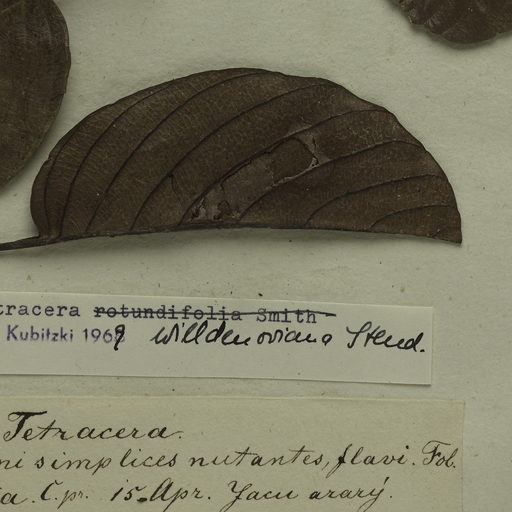 tracera rotundifolia Smith
Kubitzki 1969 willdenowiana Steud.
Tetracera.
ni simplices nutantes, flavi. Fol.
a. C. pr. 15. Apr. Yacu arary.